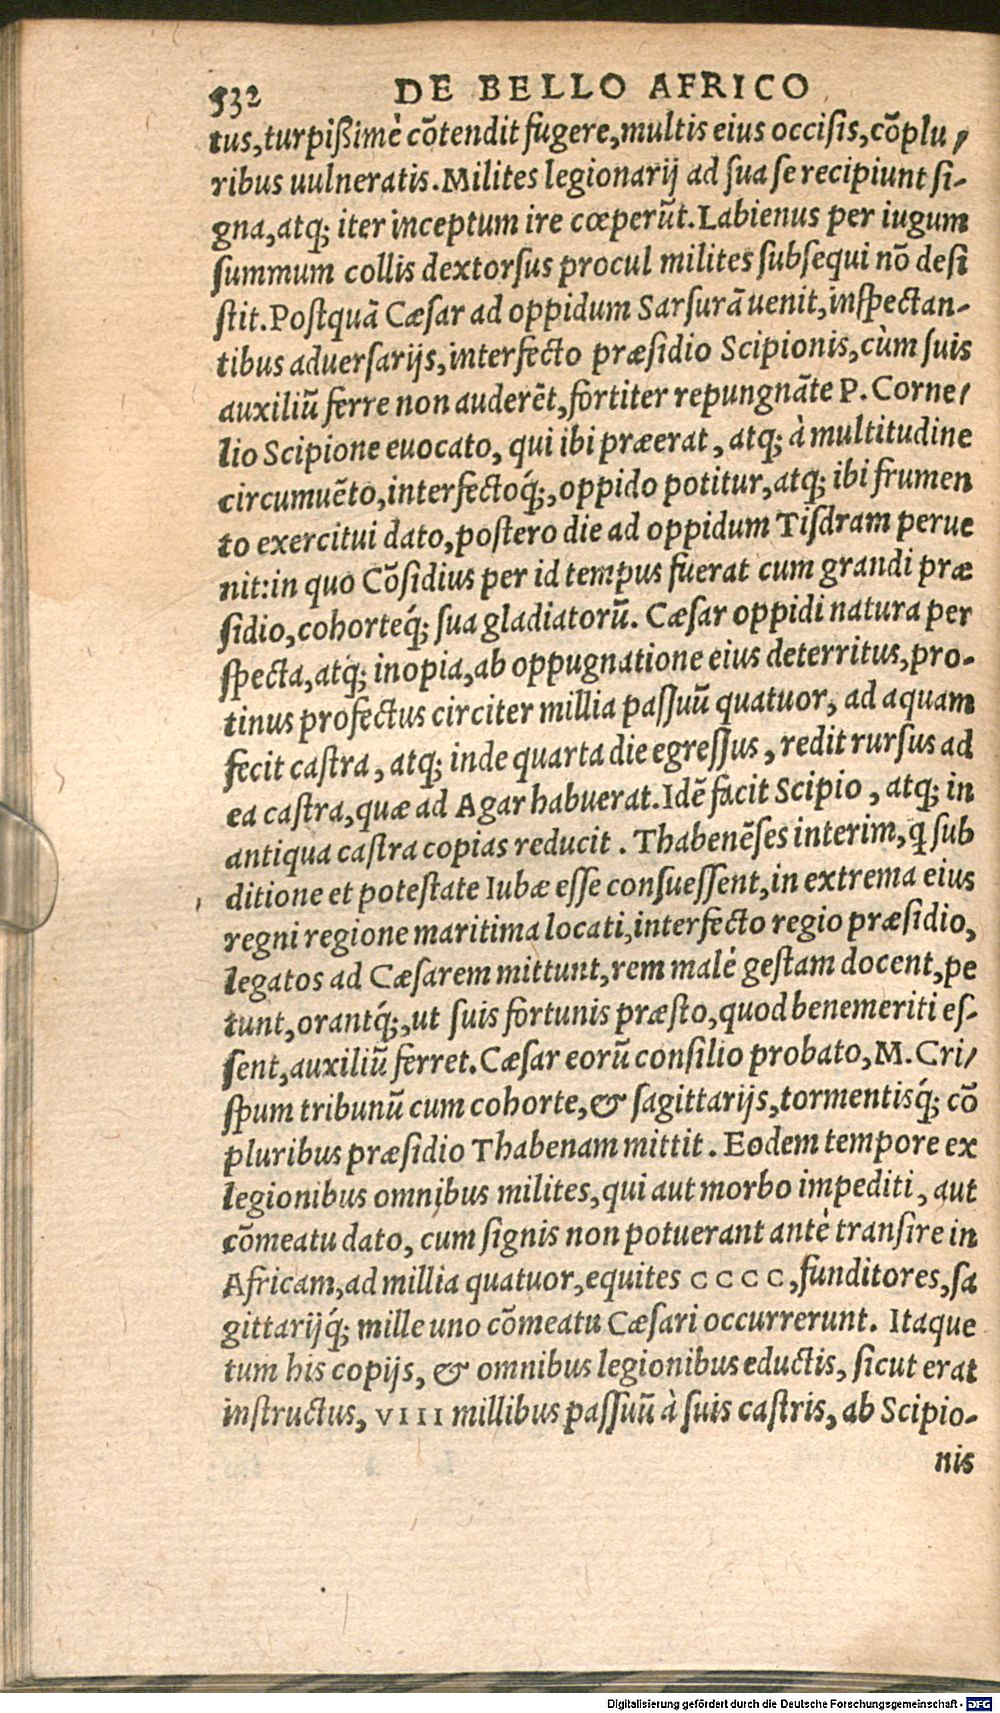 532 DE BELLO AFRICO
tus, turpißimè cōtendit fugere, multis eius occisis, cōplu/
ribus uulneratis. Milites legionarij ad sua se recipiunt si-
gna, atq; iter inceptum ire cœperūt. Labienus per iugum
summum collis dextorsus procul milites subsequi nō desi
stit. Postquā Cæsar ad oppidum Sarsurā uenit, inspectan-
tibus aduersarijs, interfecto præsidio Scipionis, cùm suis
auxiliū ferre non auderēt, fortiter repungnāte P. Corne/
lio Scipione euocato, qui ibi præerat, atq; à multitudine
circumuēto, interfectoq́;, oppido potitur, atq; ibi frumen
to exercitui dato, postero die ad oppidum Tisdram perue
nit: in quo Cōsidius per id tempus fuerat cum grandi præ
sidio, cohorteq́; sua gladiatorū. Cæsar oppidi natura per
specta, atq; inopia, ab oppugnatione eius deterritus, pro-
tinus profectus circiter millia passuū quatuor, ad aquam
fecit castra, atq; inde quarta die egressus, redit rursus ad
ea castra, quæ ad Agar habuerat. Idē facit Scipio, atq; in
antiqua castra copias reducit. Thabenēses interim, q̃ sub
ditione et potestate Iubæ esse consuessent, in extrema eius
regni regione maritima locati, interfecto regio præsidio,
legatos ad Cæsarem mittunt, rem malè gestam docent, pe
tunt, orantq́;, ut suis fortunis præsto, quod benemeriti es-
sent, auxiliū ferret. Cæsar eorū consilio probato, M. Cri/
spum tribunū cum cohorte, & sagittarijs, tormentisq́; cō
pluribus præsidio Thabenam mittit. Eodem tempore ex
legionibus omnibus milites, qui aut morbo impediti, aut
cōmeatu dato, cum signis non potuerant antè transire in
Africam, ad millia quatuor, equites CCCC, funditores, sa
gittarijq́; mille uno cōmeatu Cæsari occurrerunt. Itaque
tum his copijs, & omnibus legionibus eductis, sicut erat
instructus, VIII millibus passuū à suis castris, ab Scipio-
nis
Digitalisierung gefördert durch die Deutsche Forschungsgemeinschaft - DFG